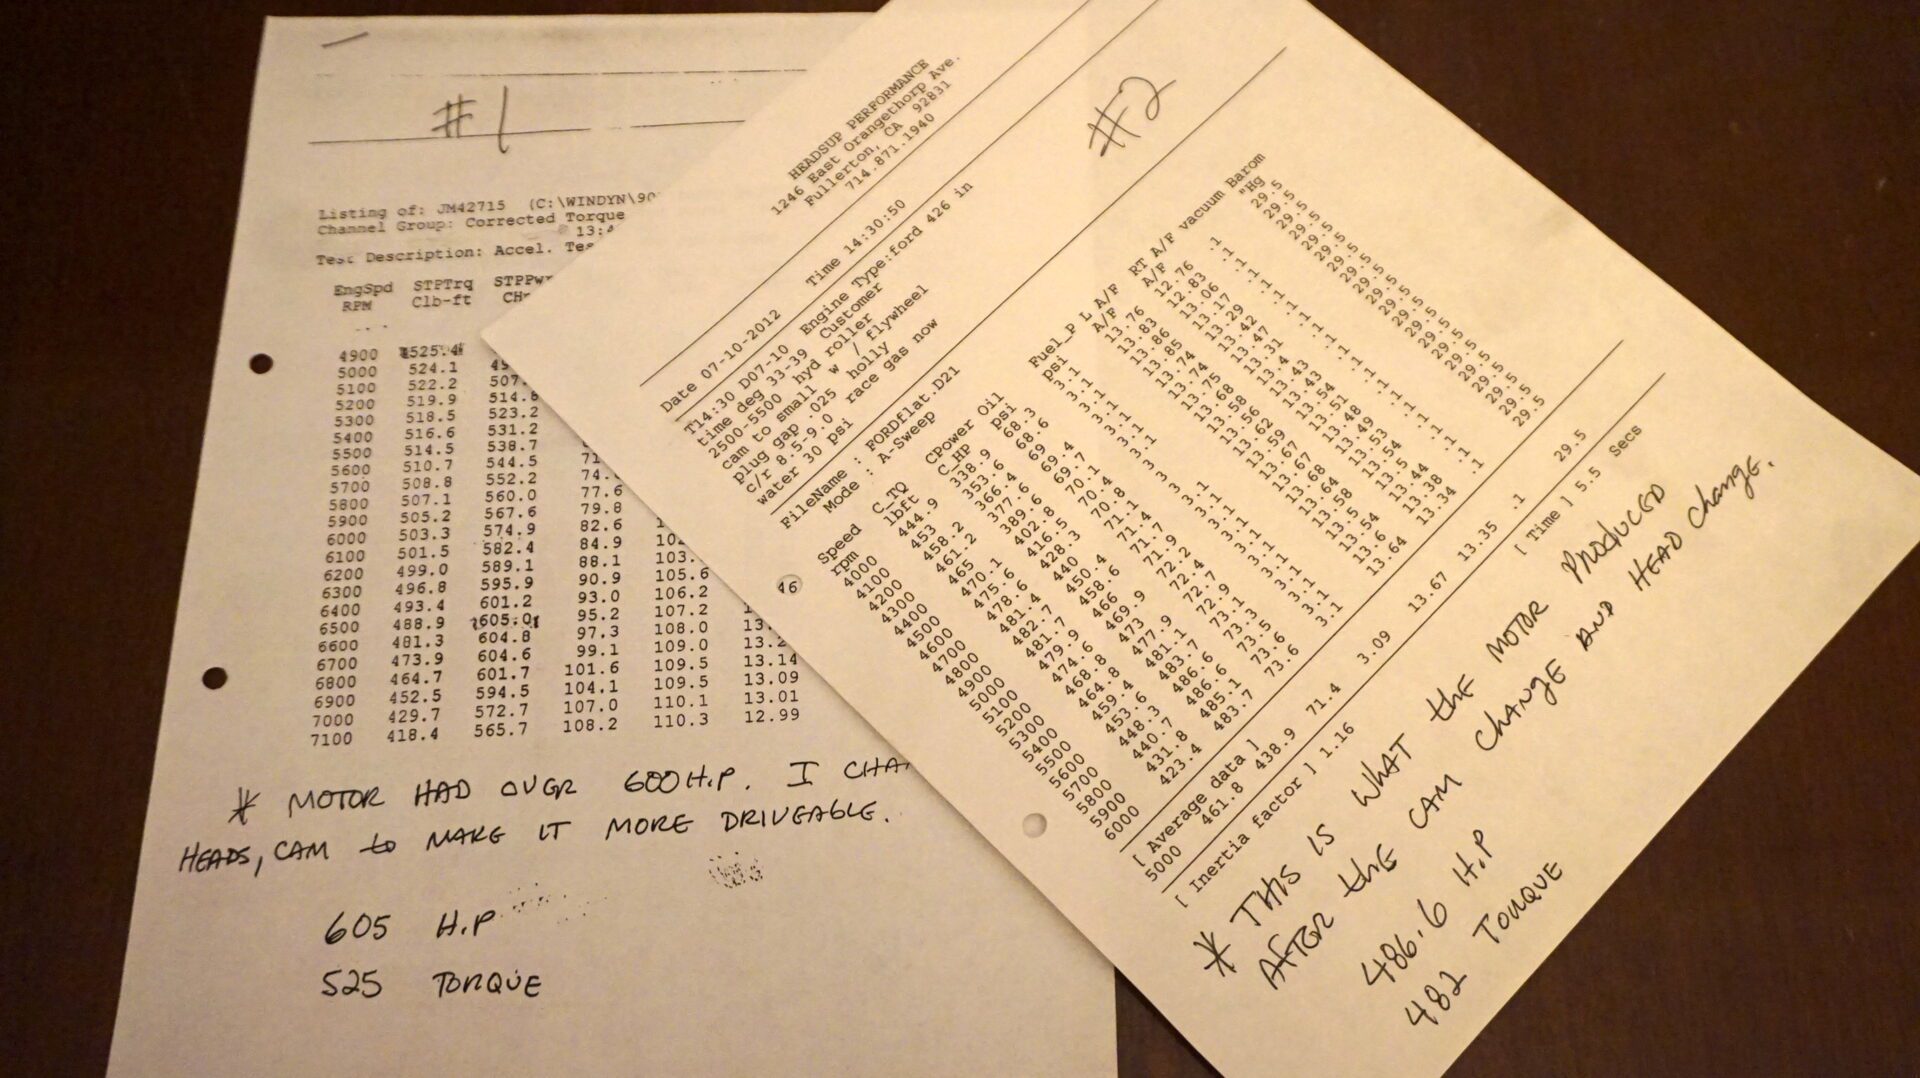 #1
Listing of: JM42715 (C:\WINDYN\90
Channel Group: Corrected Torque
13:4
Test Description: Accel. Tes
EngSpd STPTrq STPPwr
RPM Clb-ft CH
4900 525.4
5000 524.1 49
5100 522.2 507.
5200 519.9 514.8
5300 518.5 523.2
5400 516.6 531.2
5500 514.5 538.7
5600 510.7 544.5 71
5700 508.8 552.2 74.
5800 507.1 560.0 77.6
5900 505.2 567.6 79.8
6000 503.3 574.9 82.6 1
6100 501.5 582.4 84.9 102
6200 499.0 589.1 88.1 103.
6300 496.8 595.9 90.9 105.6 46
6400 493.4 601.2 93.0 106.2
6500 488.9 605.0 95.2 107.2 1
6600 481.3 604.8 97.3 108.0 13.
6700 473.9 604.6 99.1 109.0 13.2
6800 464.7 601.7 101.6 109.5 13.14
6900 452.5 594.5 104.1 109.5 13.09
7000 429.7 572.7 107.0 110.1 13.01
7100 418.4 565.7 108.2 110.3 12.99
* MOTOR HAD OVER 600 H.P. I CHA
HEADS, CAM to MAKE IT MORE DRIVEABLE.
605 H.P
525 TORQUE
#2
HEADSUP PERFORMANCE
1246 East Orangethorp Ave.
Fullerton, CA 92831
714.871.1940
Date 07-10-2012 Time 14:30:50
T14:30 D07-10 Engine Type:ford 426 in
time deg 33-39 Customer
2500-5500 hyd roller
cam to small w / flywheel
plug gap .025 holly
c/r 8.5-9.0 race gas now
water 30 psi
FileName : FORDflat.D21
Mode : A-Sweep
Speed C_TQ CPower Oil Fuel_P L A/F RT A/F vacuum Barom
rpm lbft C_HP psi psi A/F A/F "Hg
4000 444.9 338.9 68.3 3.1 13.76 12.76 .1 29.5
4100 453 353.6 68.6 3.1 13.83 12.83 .1 29.5
4200 458.2 366.4 69 3.1 13.86 13.06 .1 29.5
4300 461.2 377.6 69.4 3.1 13.85 13.17 .1 29.5
4400 465 389.6 69.7 3.1 13.74 13.29 .1 29.5
4500 470.1 402.8 70.1 3.1 13.74 13.42 .1 29.5
4600 475.6 416.5 70.4 3.1 13.75 13.47 .1 29.5
4700 478.6 428.3 70.8 3 13.68 13.31 .1 29.5
4800 481.4 440 71.1 3 13.58 13.4 .1 29.5
4900 482.7 450.4 71.4 3.1 13.56 13.43 .1 29.5
5000 481.7 458.6 71.7 3.1 13.62 13.43 .1 29.5
5100 479.9 466 71.9 3.1 13.59 13.54 .1 29.5
5200 474.6 469.9 72.2 3.1 13.67 13.51 .1 29.5
5300 468.8 473 72.4 3.1 13.67 13.48 .1 29.5
5400 464.8 477.9 72.7 3.1 13.68 13.49 .1 29.5
5500 459.4 481.1 72.9 3.1 13.64 13.53 .1 29.5
5600 453.6 483.7 73.1 3.1 13.58 13.54 .1 29.5
5700 448.3 486.6 73.3 3.1 13.5 13.5 .1 29.5
5800 440.7 486.6 73.5 3.1 13.54 13.44 .1 29.5
5900 431.8 485.1 73.6 3.1 13.6 13.38 .1 29.5
6000 423.4 483.7 73.6 3.1 13.64 13.34 .1 29.5
[ Average data ]
5000 461.8 438.9 71.4 3.09 13.67 13.35 .1 29.5
[ Inertia factor ] 1.16 [ Time ] 5.5 Secs
* THIS IS WHAT the MOTOR PRODUCED
AFTER the CAM CHANGE AND HEAD Change.
486.6 H.P
482 TORQUE